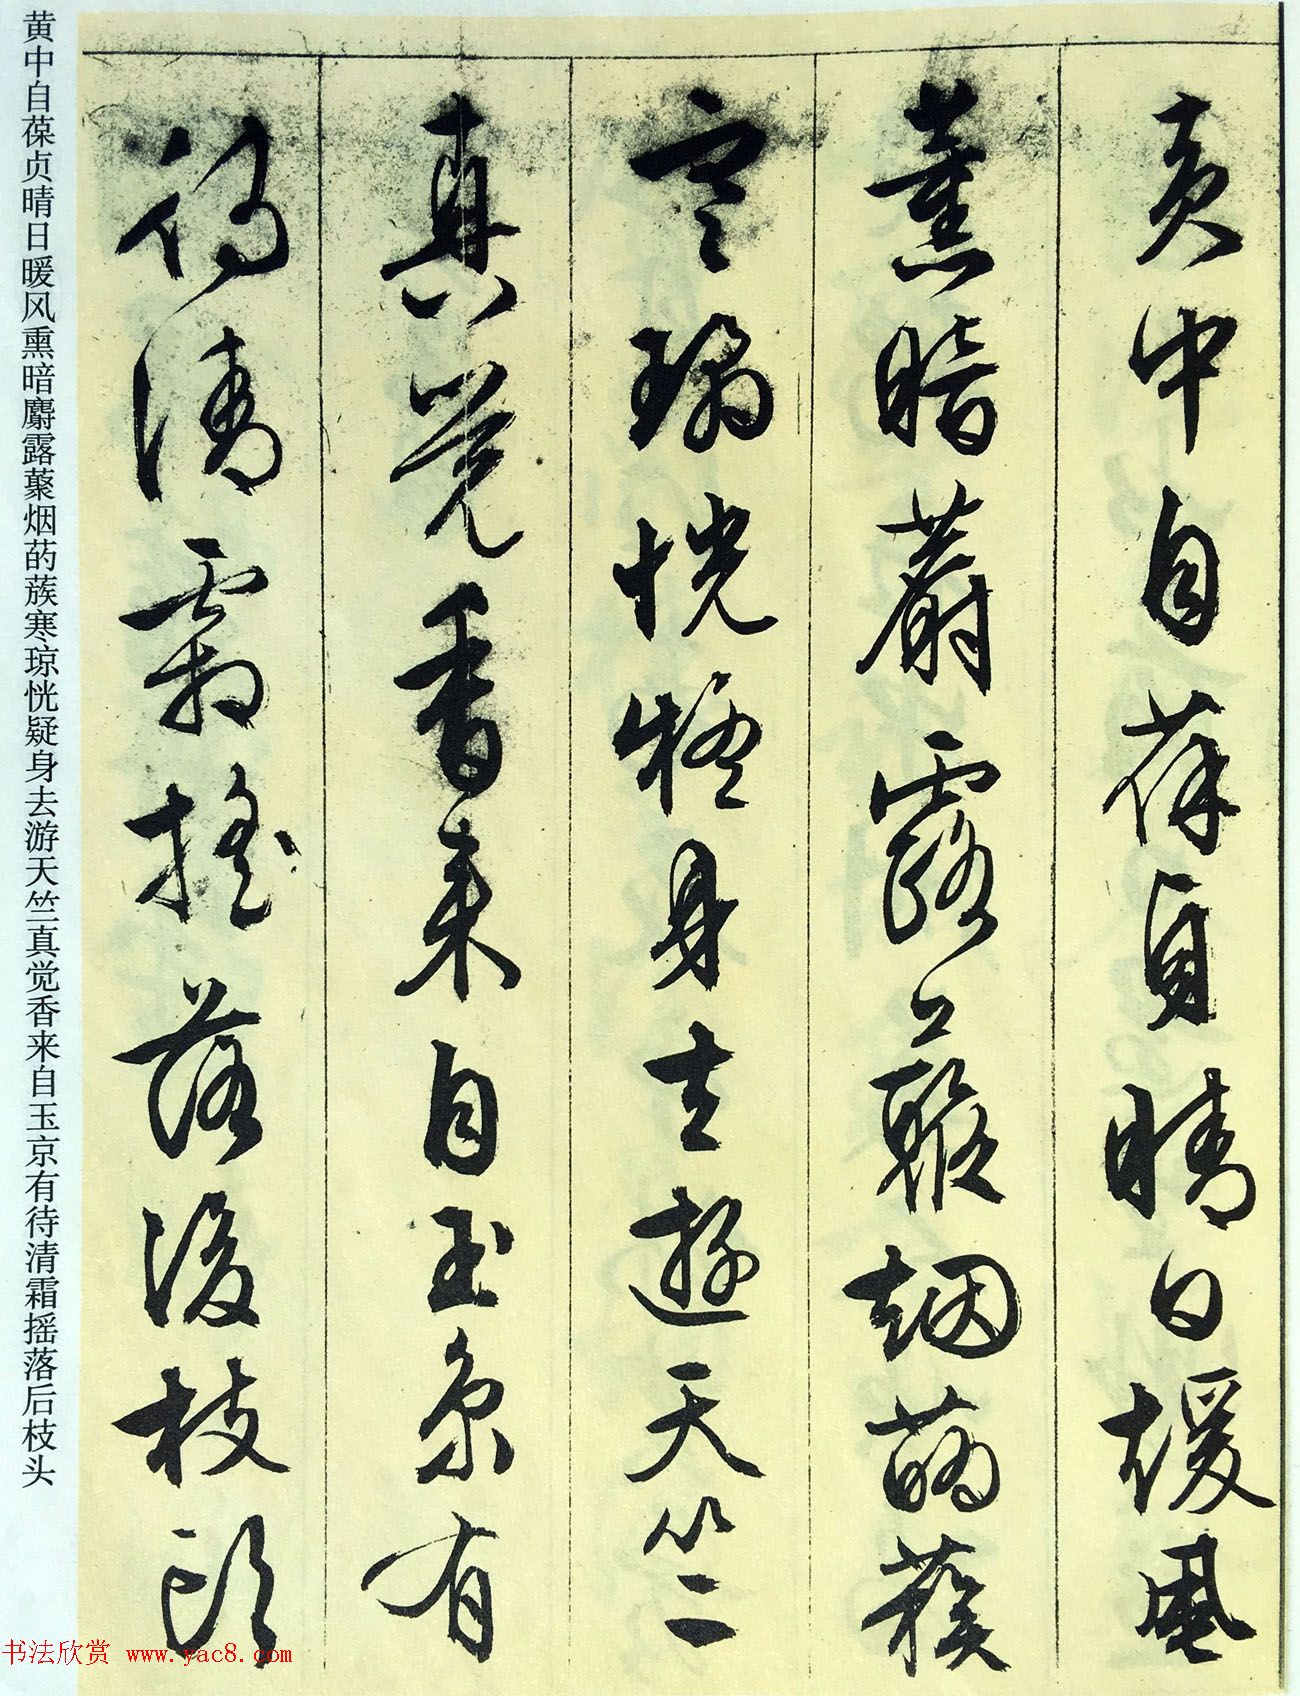 黄中自葆贞晴日暖风熏暗麝露蘂烟药蔟寒琼恍疑身去游天竺真觉香来自玉京有待清霜摇落后枝头
黄中自葆貞晴日煖風
薰暗麝露蘂烟药蔟
寒瓊恍疑身去遊天竺
真覚香来自玉京有
待清霜摇落後枝頭
书法欣赏 www.yac8.com